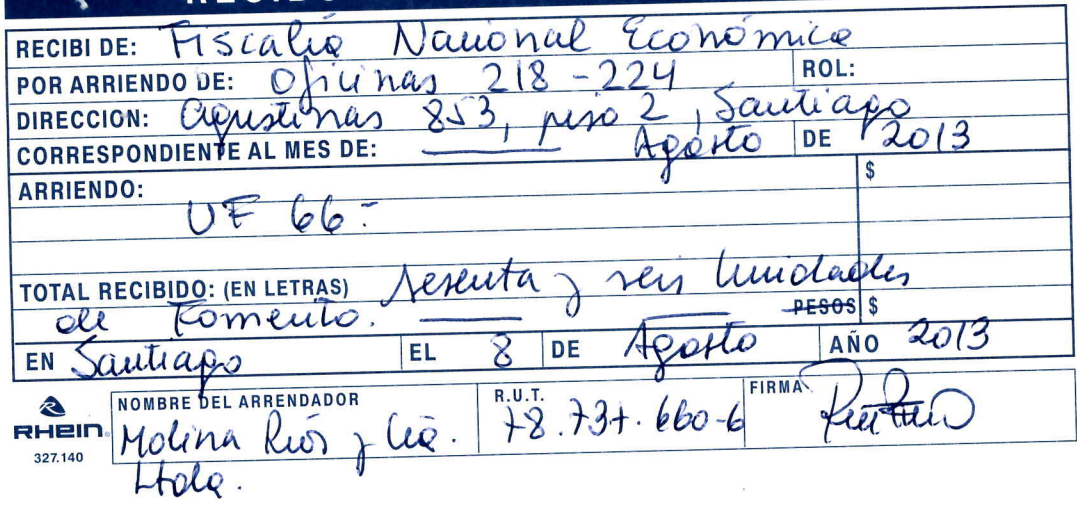 RECIBI DE: Fiscalía Nacional Económica
POR ARRIENDO DE: Oficinas 218-224 ROL:
DIRECCION: Agustinas 853, piso 2, Santiago
CORRESPONDIENTE AL MES DE: Agosto DE 2013
ARRIENDO: $
UF 66.-
TOTAL RECIBIDO: (EN LETRAS) Sesenta y seis Unidades
de Fomento. PESOS $
EN Santiago EL 8 DE Agosto AÑO 2013
NOMBRE DEL ARRENDADOR R.U.T. FIRMA
RHEIN Molina Ríos y Cía. 78.737.660-6
327.140
Ltda.